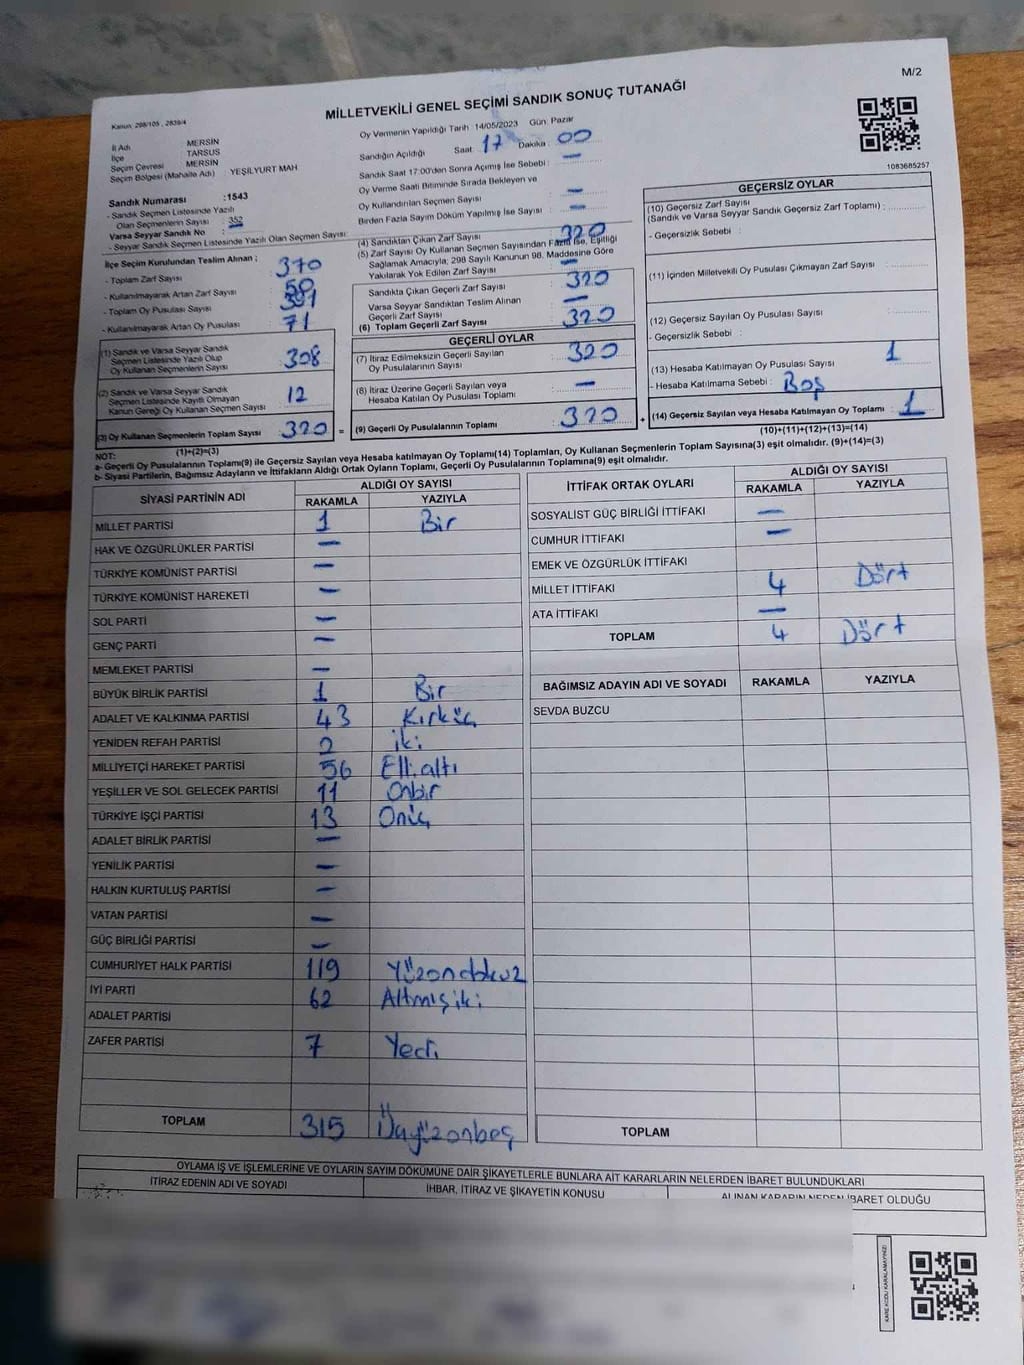 M/2
MİLLETVEKİLİ GENEL SEÇİMİ SANDIK SONUÇ TUTANAĞI
Kanun: 298/105 , 2839/4
İl Adı MERSİN
İlçe TARSUS
Seçim Çevresi MERSİN
Seçim Bölgesi (Mahalle Adı) YEŞİLYURT MAH
Oy Vermenin Yapıldığı Tarih 14/05/2023 Gün: Pazar
Sandığın Açıldığı Saat: 17 Dakika: 00
Sandık Saat 17:00'den Sonra Açımış İse Sebebi : —
Oy Verme Saati Bitiminde Sırada Bekleyen ve
Oy Kullandırılan Seçmen Sayısı : —
Birden Fazla Sayım Döküm Yapılmış İse Sayısı : —
1083685257
Sandık Numarası : 1543
- Sandık Seçmen Listesinde Yazılı
Olan Seçmenlerin Sayısı : 352
Varsa Seyyar Sandık No :
- Seyyar Sandık Seçmen Listesinde Yazılı Olan Seçmen Sayısı:
İlçe Seçim Kurulundan Teslim Alınan ;
- Toplam Zarf Sayısı : 370
- Kullanılmayarak Artan Zarf Sayısı : 50
- Toplam Oy Pusulası Sayısı : 391
- Kullanılmayarak Artan Oy Pusulası : 71
(1) Sandık ve Varsa Seyyar Sandık
Seçmen Listesinde Yazılı Olup
Oy Kullanan Seçmenlerin Sayısı : 308
(2) Sandık ve Varsa Seyyar Sandık
Seçmen Listesinde Kayıtlı Olmayan
Kanun Gereği Oy Kullanan Seçmen Sayısı : 12
(3) Oy Kullanan Seçmenlerin Toplam Sayısı : 320
(1)+(2)=(3)
(4) Sandıktan Çıkan Zarf Sayısı : 320
(5) Zarf Sayısı Oy Kullanan Seçmen Sayısından Fazla İse, Eşitliği
Sağlamak Amacıyla, 298 Sayılı Kanunun 98. Maddesine Göre
Yakılarak Yok Edilen Zarf Sayısı : —
Sandıkta Çıkan Geçerli Zarf Sayısı : 320
Varsa Seyyar Sandıktan Teslim Alınan
Geçerli Zarf Sayısı : —
(6) Toplam Geçerli Zarf Sayısı : 320
GEÇERLİ OYLAR
(7) İtiraz Edilmeksizin Geçerli Sayılan
Oy Pusulalarının Sayısı : 320
(8) İtiraz Üzerine Geçerli Sayılan veya
Hesaba Katılan Oy Pusulası Toplamı : —
= (9) Geçerli Oy Pusulalarının Toplamı : 320
GEÇERSİZ OYLAR
(10) Geçersiz Zarf Sayısı
(Sandık ve Varsa Seyyar Sandık Geçersiz Zarf Toplamı) :
- Geçersizlik Sebebi :
(11) İçinden Milletvekili Oy Pusulası Çıkmayan Zarf Sayısı :
(12) Geçersiz Sayılan Oy Pusulası Sayısı :
- Geçersizlik Sebebi :
(13) Hesaba Katılmayan Oy Pusulası Sayısı : 1
- Hesaba Katılmama Sebebi : Boş
+ (14) Geçersiz Sayılan veya Hesaba Katılmayan Oy Toplamı : 1
(10)+(11)+(12)+(13)=(14)
NOT:
a- Geçerli Oy Pusulalarının Toplamı(9) ile Geçersiz Sayılan veya Hesaba katılmayan Oy Toplamı(14) Toplamları, Oy Kullanan Seçmenlerin Toplam Sayısına(3) eşit olmalıdır. (9)+(14)=(3)
b- Siyasi Partilerin, Bağımsız Adayların ve İttifakların Aldığı Ortak Oyların Toplamı, Geçerli Oy Pusulalarının Toplamına(9) eşit olmalıdır.
SİYASİ PARTİNİN ADI ALDIĞI OY SAYISI
RAKAMLA YAZIYLA
MİLLET PARTİSİ 1 Bir
HAK VE ÖZGÜRLÜKLER PARTİSİ —
TÜRKİYE KOMÜNİST PARTİSİ —
TÜRKİYE KOMÜNİST HAREKETİ —
SOL PARTİ —
GENÇ PARTİ —
MEMLEKET PARTİSİ —
BÜYÜK BİRLİK PARTİSİ 1 Bir
ADALET VE KALKINMA PARTİSİ 43 Kırküç
YENİDEN REFAH PARTİSİ 2 iki
MİLLİYETÇİ HAREKET PARTİSİ 56 Elli altı
YEŞİLLER VE SOL GELECEK PARTİSİ 11 Onbir
TÜRKİYE İŞÇİ PARTİSİ 13 Onüç
ADALET BİRLİK PARTİSİ —
YENİLİK PARTİSİ —
HALKIN KURTULUŞ PARTİSİ —
VATAN PARTİSİ —
GÜÇ BİRLİĞİ PARTİSİ —
CUMHURİYET HALK PARTİSİ 119 Yüzondokuz
İYİ PARTİ 62 Altmışiki
ADALET PARTİSİ
ZAFER PARTİSİ 7 Yedi
TOPLAM 315 Üçyüzonbeş
İTTİFAK ORTAK OYLARI ALDIĞI OY SAYISI
RAKAMLA YAZIYLA
SOSYALİST GÜÇ BİRLİĞİ İTTİFAKI —
CUMHUR İTTİFAKI —
EMEK VE ÖZGÜRLÜK İTTİFAKI
MİLLET İTTİFAKI 4 Dört
ATA İTTİFAKI —
TOPLAM 4 Dört
BAĞIMSIZ ADAYIN ADI VE SOYADI RAKAMLA YAZIYLA
SEVDA BUZCU
TOPLAM
OYLAMA İŞ VE İŞLEMLERİNE VE OYLARIN SAYIM DÖKÜMÜNE DAİR ŞİKAYETLERLE BUNLARA AİT KARARLARIN NELERDEN İBARET BULUNDUKLARI
İTİRAZ EDENİN ADI VE SOYADI İHBAR, İTİRAZ VE ŞİKAYETİN KONUSU ALINAN KARARIN NEDEN İBARET OLDUĞU
KARE KODU KARALAMAYINIZ!